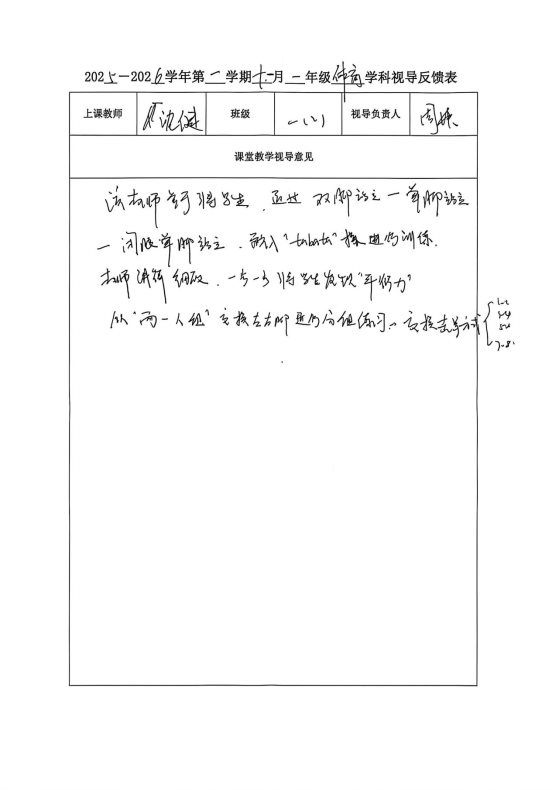 2025—2026学年第一学期十一月一年级体育学科视导反馈表
上课教师 沈健 班级 一(2) 视导负责人 周
课堂教学视导意见
该老师善于引导学生,通过双脚站立—单脚站立
—闭眼单脚站立,融入“tabata”操进行训练。
老师讲解细致,一步一步引导学生发现“平衡力”
从“两人一组”交换左右脚进行分组练习,交换
1-2
3-4
5-6
7-8.